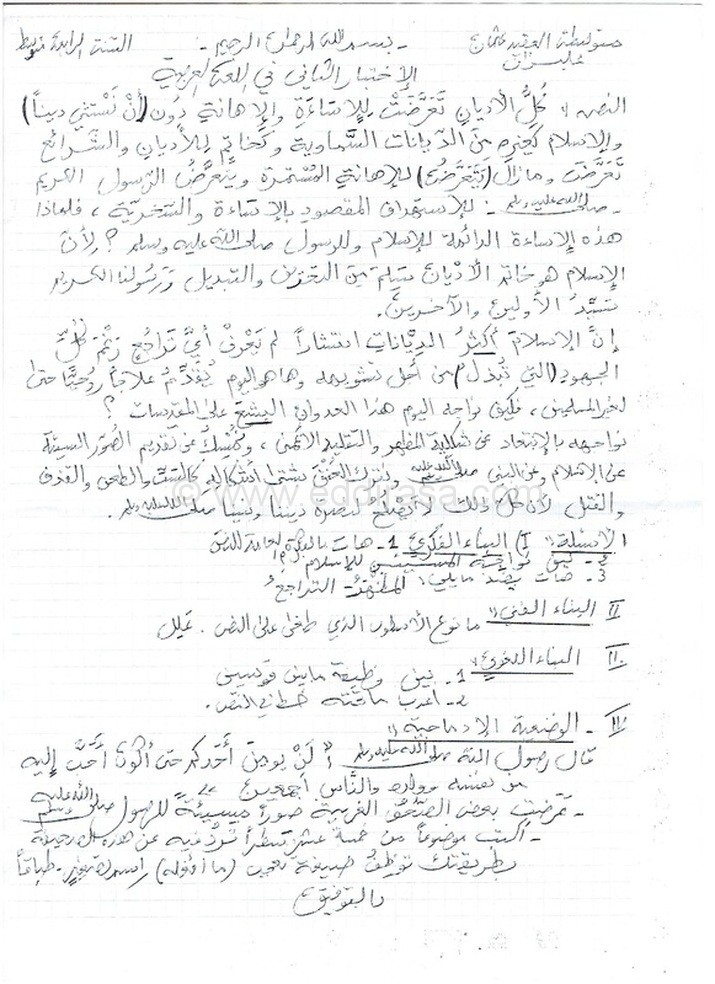 متوسطة العقيد عثمان - بسم الله الرحمان الرحيم - السنة الرابعة متوسط
الإختبار الثاني في اللغة العربية
النص: كُلُّ الأديانِ تَعَرَّضَتْ لِلإساءَةِ والإهانةِ دُون (أنْ نَسْتثني ديناً)
والإسلام كغيره منَ الدّيانات السَّماوية وكخاتمٍ لِلأديان والشَّرائع
تَعَرَّضَ ومازال (يَتَعَرَّضُ) للإهانةِ المُسْتمرة ويتعرَّضُ الرّسول الكريم
- صلى الله عليه وسلم - للإستهداف المقصود بالإساءة والسّخريّة ، فلماذا
هذه الإساءة الدائمة للإسلام وللرسول صلى الله عليه وسلم ؟ لأنَّ
الإسلام هو خاتم الأدْيان سَلِمَ مِنَ التحريف والتبديل وَرَسُولنا الكريم
سَيِّدُ الأولينَ والآخرينَ.
إنَّ الإسلامَ أكثرُ الدِّياناتِ انتشاراً لم يَعْرفْ أيَّ تَرَاجُعٍ رَغْمَ كُلِّ
الجهودِ (التي تُبْذلُ) من أجل تشويهه وها هو اليوم يُقدِّمُ علاجاً رُوحيًّا حتى
لغير المسلمين ، فكيف نواجه اليوم هذا العدوان البشعَ على المقدسات ؟
نواجهه بالإبتعاد عن شكلية المظهر والتقليد الأعمى ، عن تقديم الصُّوَر السيئة
عن الإسلام وعن النبي صلى الله عليه وسلم ونترك العُنْفَ بشتى أشكاله كالسَّبِّ والطعن والقذف
والقتل لأن كلَّ ذلك لا يَصْلُحُ لنصرة ديننا ونبينا صلى الله عليه وسلم.
© www.eddirasa.com
الأسئلة: I) البناء الفكري: 1 - هات الفكرة العامة للنص
2 - كيف نواجه المسيئين للإسلام ؟
3 - هات ضد مايلي: التراجعُ
II البناء الفني: ما نوع الأسلوب الذي طغى على النص . علل
III البناء اللغوي: 1 - بيّن وظيفة مابين قوسين
2 - أعرب ما تحته خط في النص.
- الوضعية الإدماجية:
قال رسول الله صلى الله عليه وسلم: " لَنْ يؤمنَ أَحَدُكم حتى أكونَ أحَبَّ إليه
من نفسه وولده والنَّاسِ أجمعين "
- عَرَضت بعض الصُّحُفِ الغربية صوراً مسيئةً للرسول صلى الله عليه وسلم
- أكتب موضوعاً من خمسة عشر سَطراً تَرُدُّ فيه عن هذه
بطريقتك توظفُ صيغة تعجب (ما أفعَله) ، طباقاً
بالتوفيق